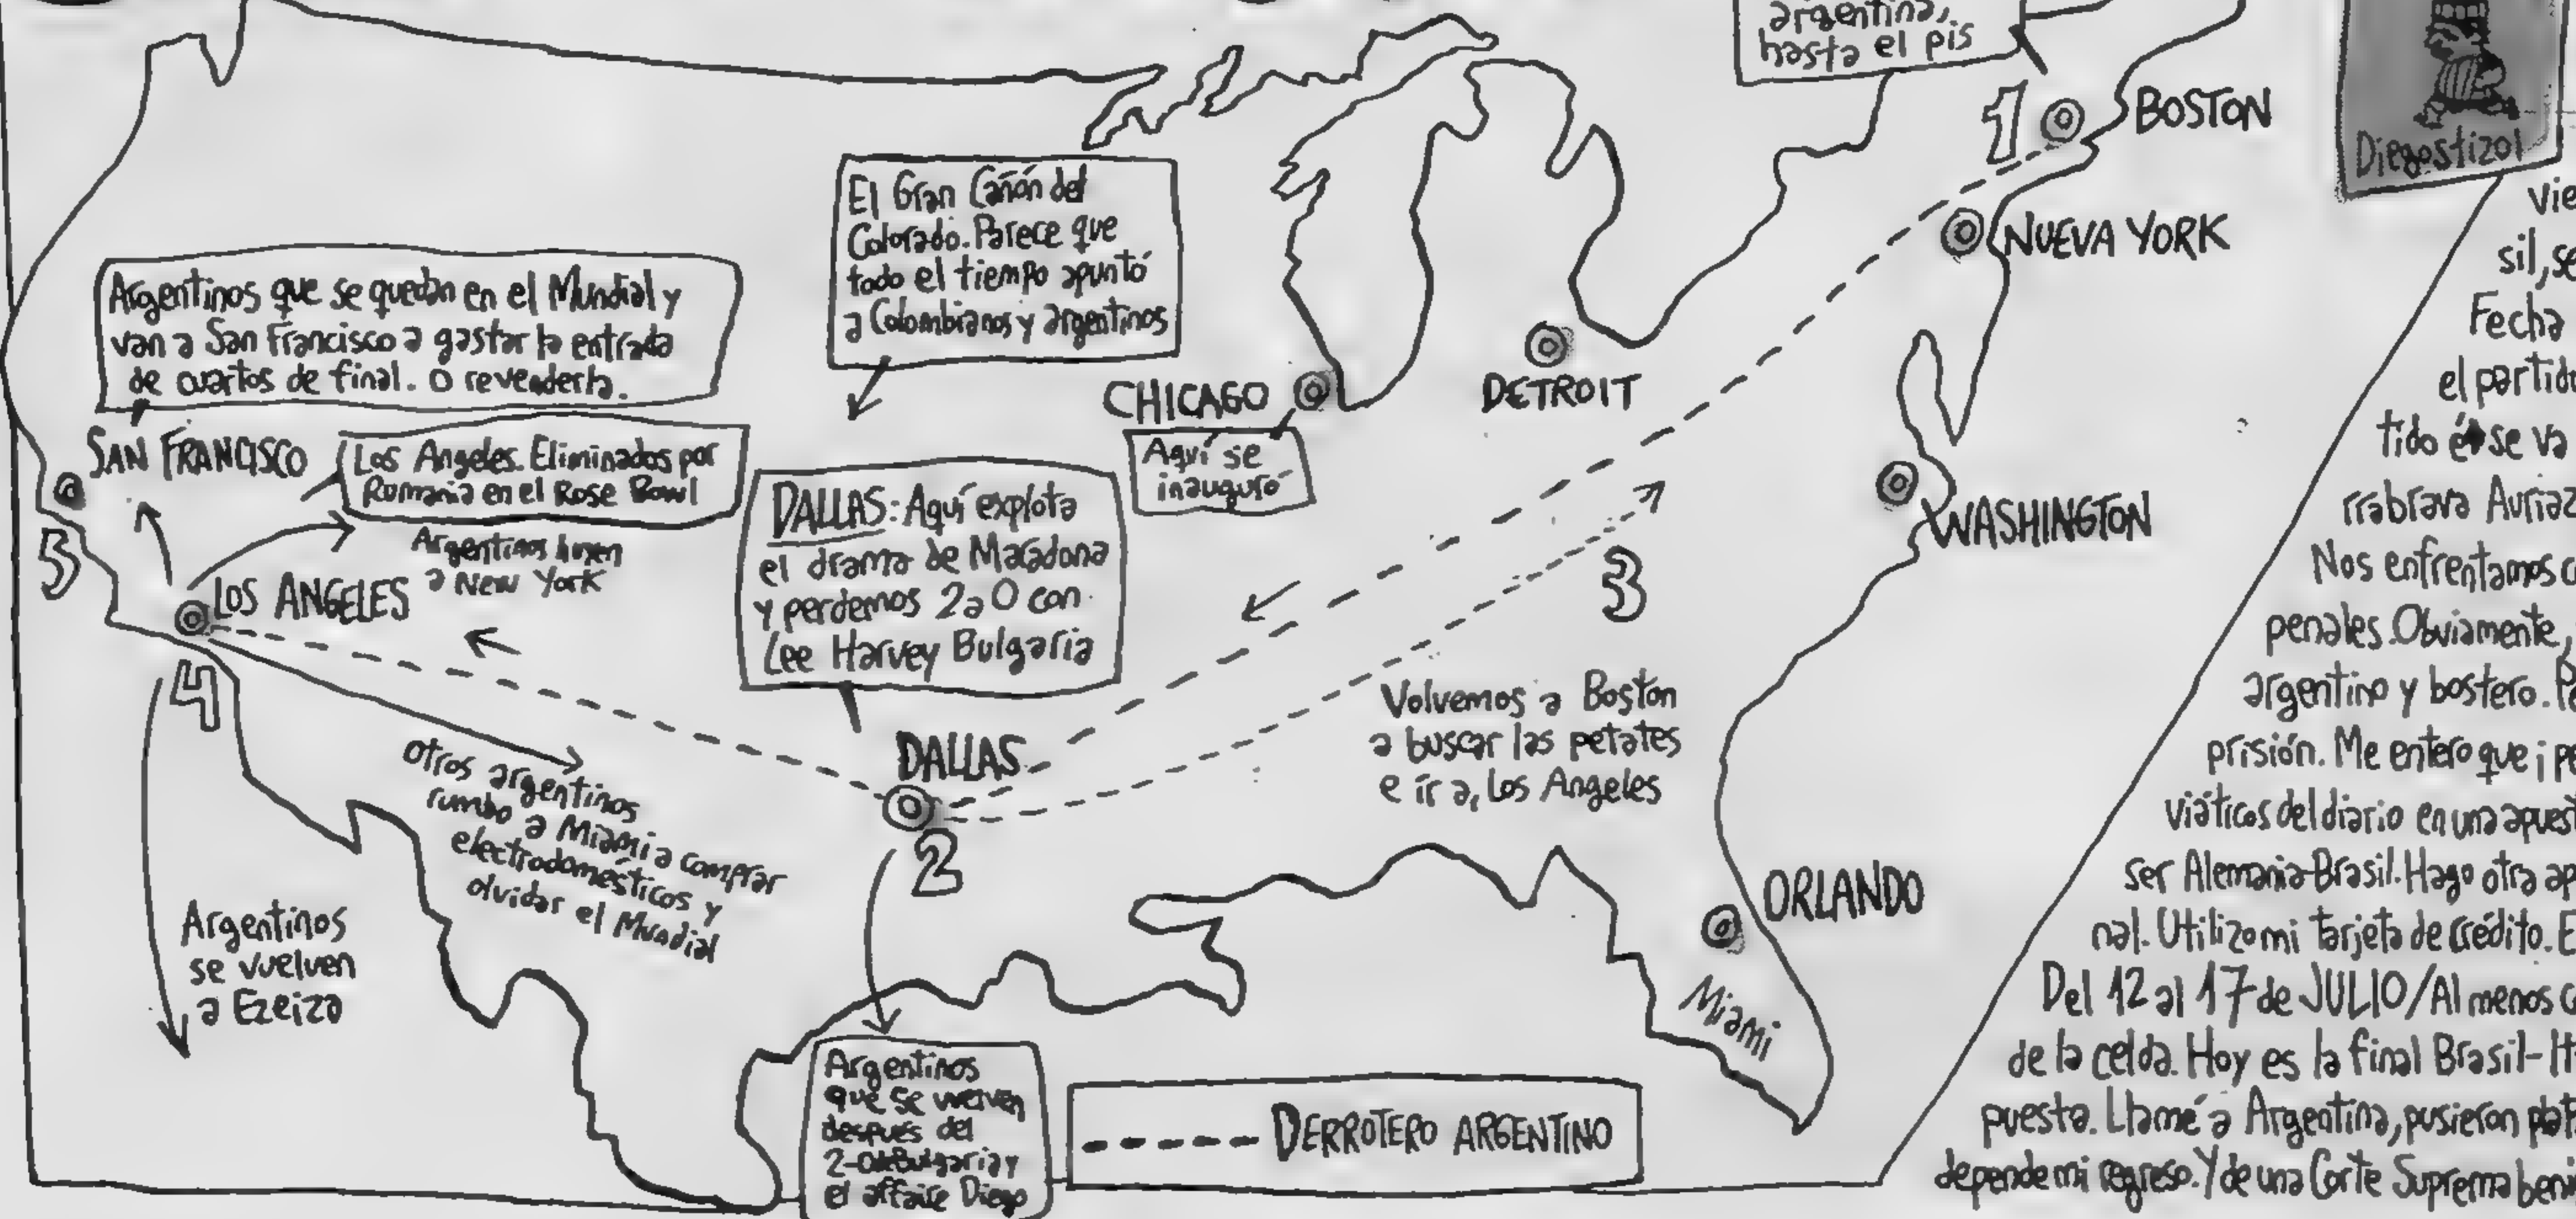 argentina,
hasta el pis
1
BOSTON
Diegostizol
El Gran Cañón del
Colorado. Parece que
todo el tiempo apuntó
a Colombianos y argentinos
NUEVA YORK
Argentinos que se quedan en el Mundial y
van a San Francisco a gastar la entrada
de cuartos de final. o revenderla.
CHICAGO
Aquí se
inauguró
DETROIT
SAN FRANCISCO
5
Los Angeles. Eliminados por
Romania en el Rose Bowl
Argentinos huyen
a New York
LOS ANGELES
4
DALLAS: Aquí explota
el drama de Maradona
y perdemos 2 a 0 con
Lee Harvey Bulgaria
WASHINGTON
3
Volvemos a Boston
a buscar las petates
e ir a, Los Angeles
DALLAS
2
otros argentinos
rumbo a Miami a comprar
electrodomésticos y
olvidar el Mundial
Argentinos
se vuelven
a Ezeiza
ORLANDO
Miami
Argentinos
que se vuelven
después del
2-0 de Bulgaria y
el affaire Diego
DERROTERO ARGENTINO
vie
sil, se
Fecha
el partido
tido él se va
rrabrava Auriaz
Nos enfrentamos c
penales. Obviamente,
argentino y bostero. P
prisión. Me entero que ¡ pe
viáticos del diario en una apuest
ser Alemania-Brasil. Hago otra ap
nal. Utilizo mi tarjeta de crédito. E
Del 12 al 17 de JULIO/Al menos c
de la celda. Hoy es la final Brasil-It
puesta. Llamé a Argentina, pusieron plat
depende mi regreso. Y de una Corte Suprema beni